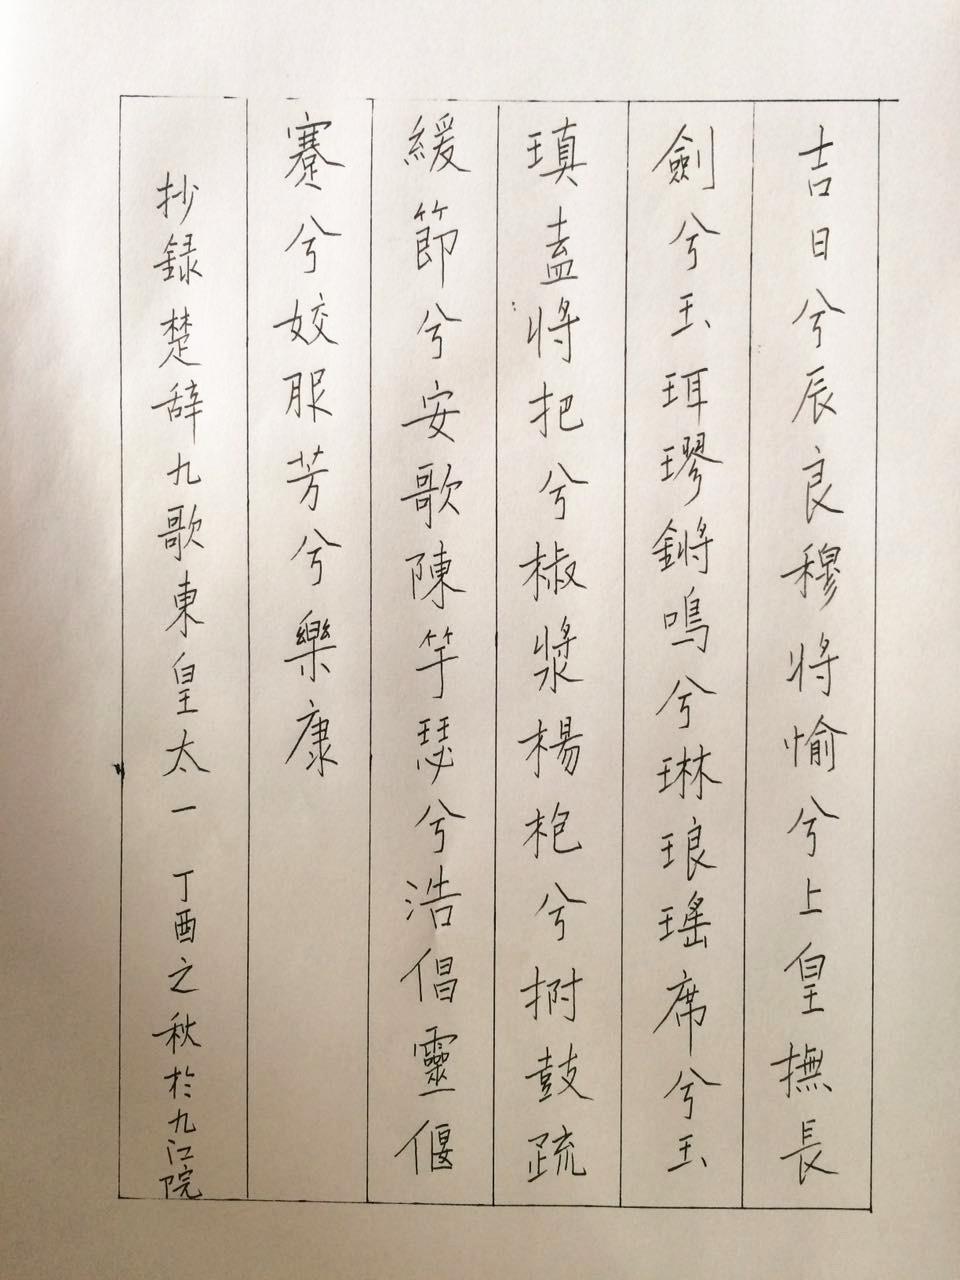 吉日兮辰良穆將愉兮上皇撫長
劍兮玉珥璆鏘鳴兮琳琅瑤席兮玉
瑱盍將把兮椒漿楊枹兮拊鼓疏
緩節兮安歌陳竽瑟兮浩倡靈偃
蹇兮姣服芳兮樂康
抄録楚辞九歌東皇太一 丁酉之秋於九江院